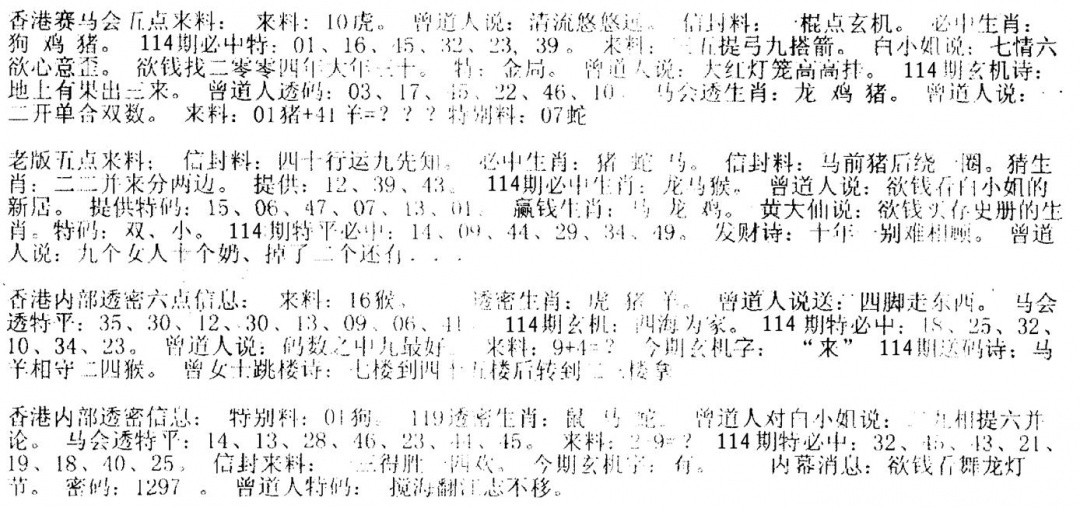 香港赛马会五点来料： 来料：10虎。 曾道人说：清流悠悠远。 信封料： 一棍点玄机。 必中生肖：
狗 鸡 猪。 114期必中特：01、16、45、32、23、39。 来料：三五提弓九搭箭。 白小姐说：七情六
欲心意歪。 欲钱找二零零四年大年三十。 特：金局。 曾道人说：大红灯笼高高挂。 114期玄机诗：
地上有果出三来。 曾道人透码：03、17、45、22、46、10。 马会透生肖：龙 鸡 猪。 曾道人说：一
二开单合双数。 来料：01猪+41羊=？？？特别料：07蛇
老版五点来料； 信封料：四十行运九先知。 必中生肖：猪 蛇 马。 信封料：马前猪后绕一圈。猜生
肖：二二并来分两边。 提供：12、39、43。 114期必中生肖：龙马猴。 曾道人说：欲钱看白小姐的
新居。 提供特码：15、06、47、07、13、01。 赢钱生肖：马 龙 鸡。 黄大仙说：欲钱买存史册的生
肖。特码：双、小。 114期特平必中：14、09、44、29、34、49。 发财诗：十年一别难相顾。 曾道
人说：九个女人十个奶、掉了二个还有．．．
香港内部透密六点信息： 来料：16猴。 透密生肖：虎 猪 羊。 曾道人说送：四脚走东西。 马会
透特平：35、30、12、30、13、09、06、41 114期玄机：四海为家。 114期特必中：18、25、32、
10、34、23。 曾道人说：码数之中九最好。 来料：9+4=？ 今期玄机字： “来” 114期送码诗：马
羊相守二四猴。 曾女士跳楼诗：七楼到四十五楼后转到二三楼拿
香港内部透密信息： 特别料：01狗。 119透密生肖：鼠 马 蛇。 曾道人对白小姐说：九相提六并
论。 马会透特平：14、13、28、46、23、44、45。 来料：2-9=？ 114期特必中：32、45、43、21、
19、18、40、25。 信封来料： 一三得胜一四欢。 今期玄机字：有。 内幕消息：欲钱看舞龙灯
节。 密码：1297 。 曾道人特码： 搅海翻江志不移。